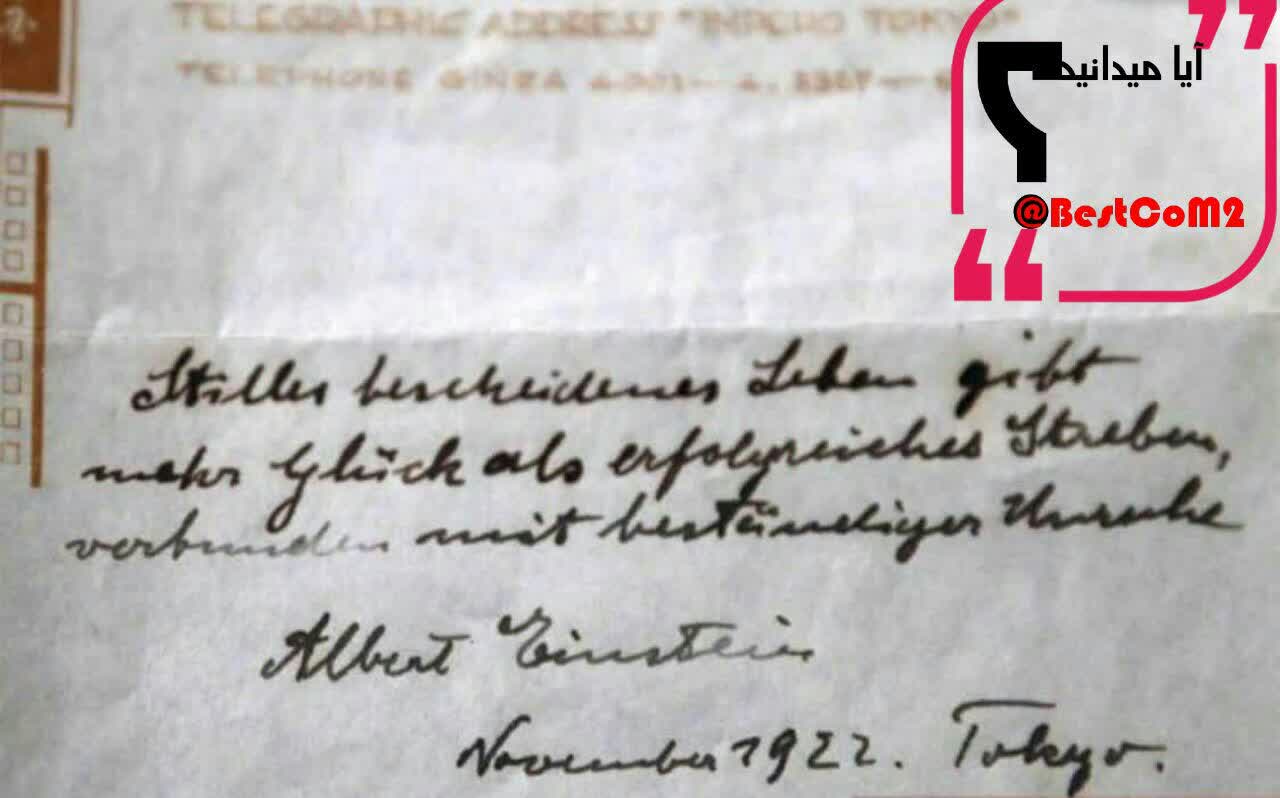 TELEGRAPHIC ADDRESS "IMPEHO TOKYO"
TELEPHONE GINZA
آیا میدانید
؟
@BestCoM2
Stilles bescheidenes Leben gibt
mehr Glück als erfolgreiches Streben,
verbunden mit beständiger Unruhe
Albert Einstein
November 1922. Tokyo.